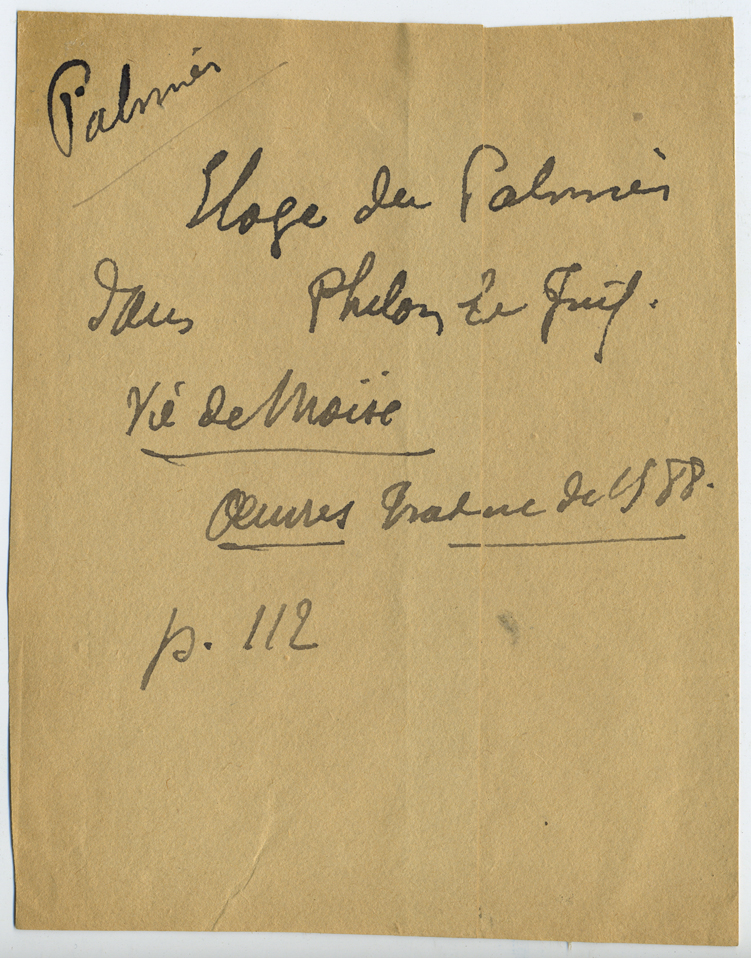 Palmier
Eloge du Palmier
dans Philon Le Juif.
Vie de Moïse
Œuvres Traduc de 1588.
p. 112